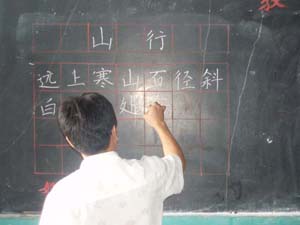 山行
远上寒山石径斜
白